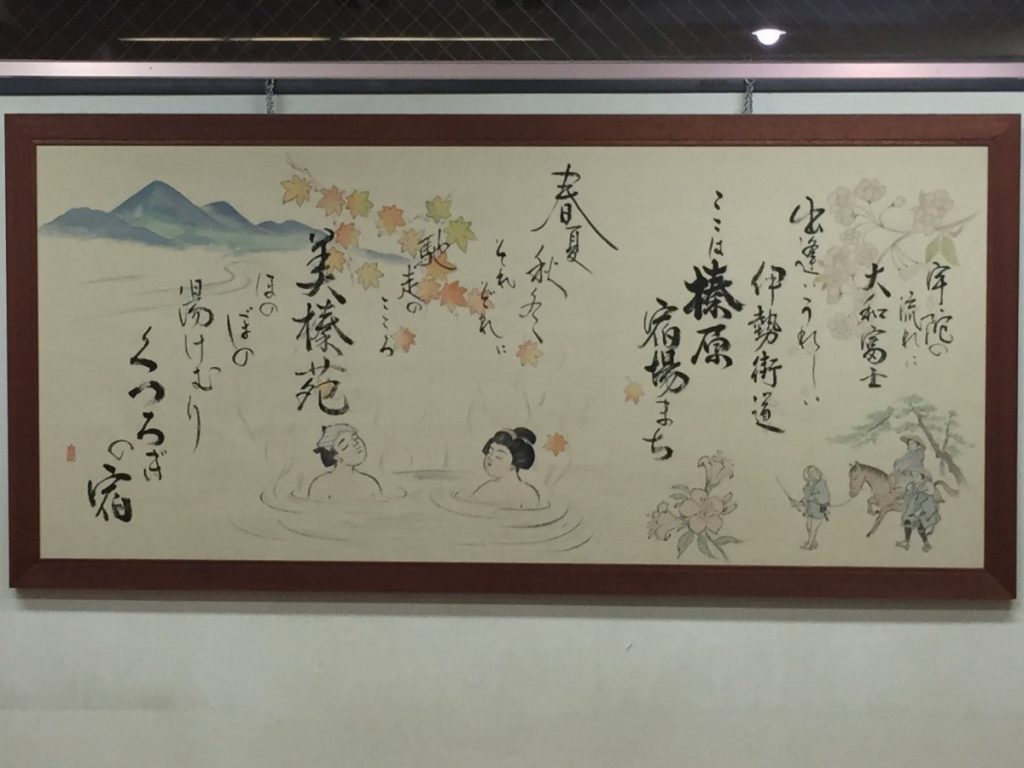 宇陀の
流れに
大和富士
出逢いうれしい
伊勢街道
ここは榛原
宿場まち
春夏
秋冬
それぞれに
馳走の
こころ
美榛苑
ほの
ぼの
湯けむり
くつろぎ
の宿